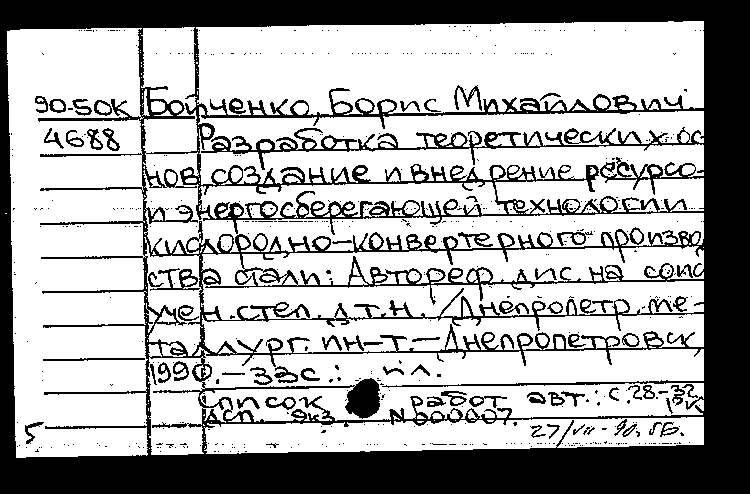 90-50К Бойченко, Борис Михайлович.
4688 Разработка теоретических ос
нов, создание и внедрение ресурсо-
и энергосберегающей технологии
кислородно-конвертерного произво
ства стали: Автореф. дис. на соис
учен. степ. д.т.н. /Днепропетр. ме-
таллург. ин-т.-Днепропетровск,
1990.-33с.: ил.
Список работ авт.: с.28-32
ДСП. Экз. N000007.
27/VII-90.
5